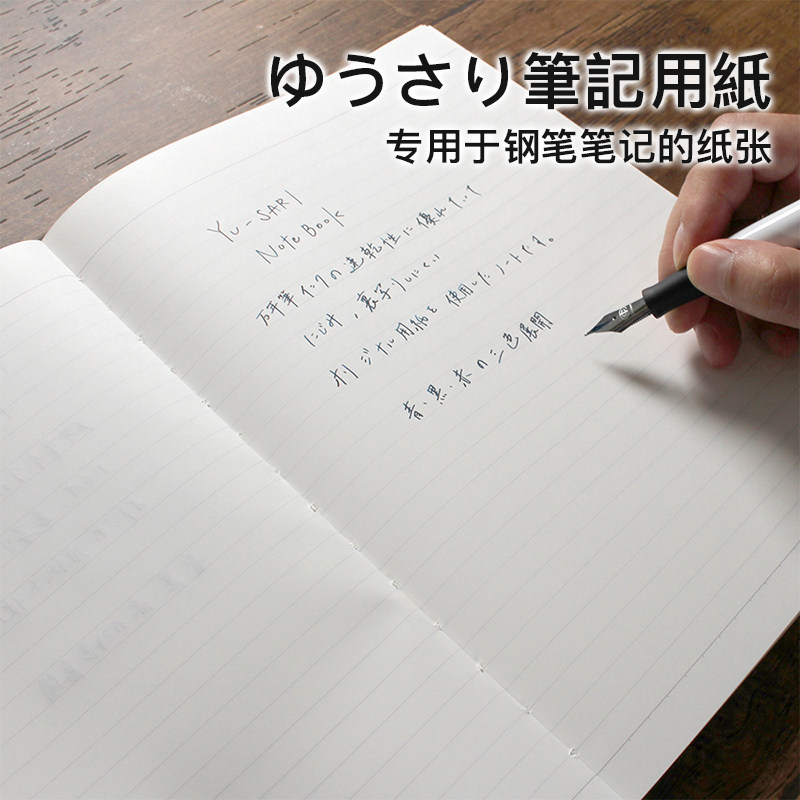 ゆうさり筆記用紙
专用于钢笔笔记的纸张
YU-SARI
Note Book
万年筆インクの速乾性に優れていて
にじみ・裏写りしにくい
オリジナル用紙を使用したノートです。
青・黒・赤の三色展開